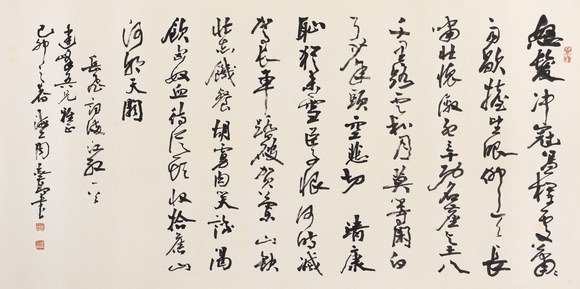 怒髮冲冠憑欄處瀟〻
雨歇擡望眼仰天長
嘯壯懷激烈三十功名塵與土八
千里路雲和月莫等閑白
了少年頭空悲切 靖康
恥猶未雪臣子恨何時滅
駕長車踏破賀蘭山缺
壯志飢餐胡虜肉笑談渴
飲匈奴血待從頭收拾舊山
河朝天闕
岳飛詞滿江紅一首
建峰吾兄雅正
己卯之春周慧珺書